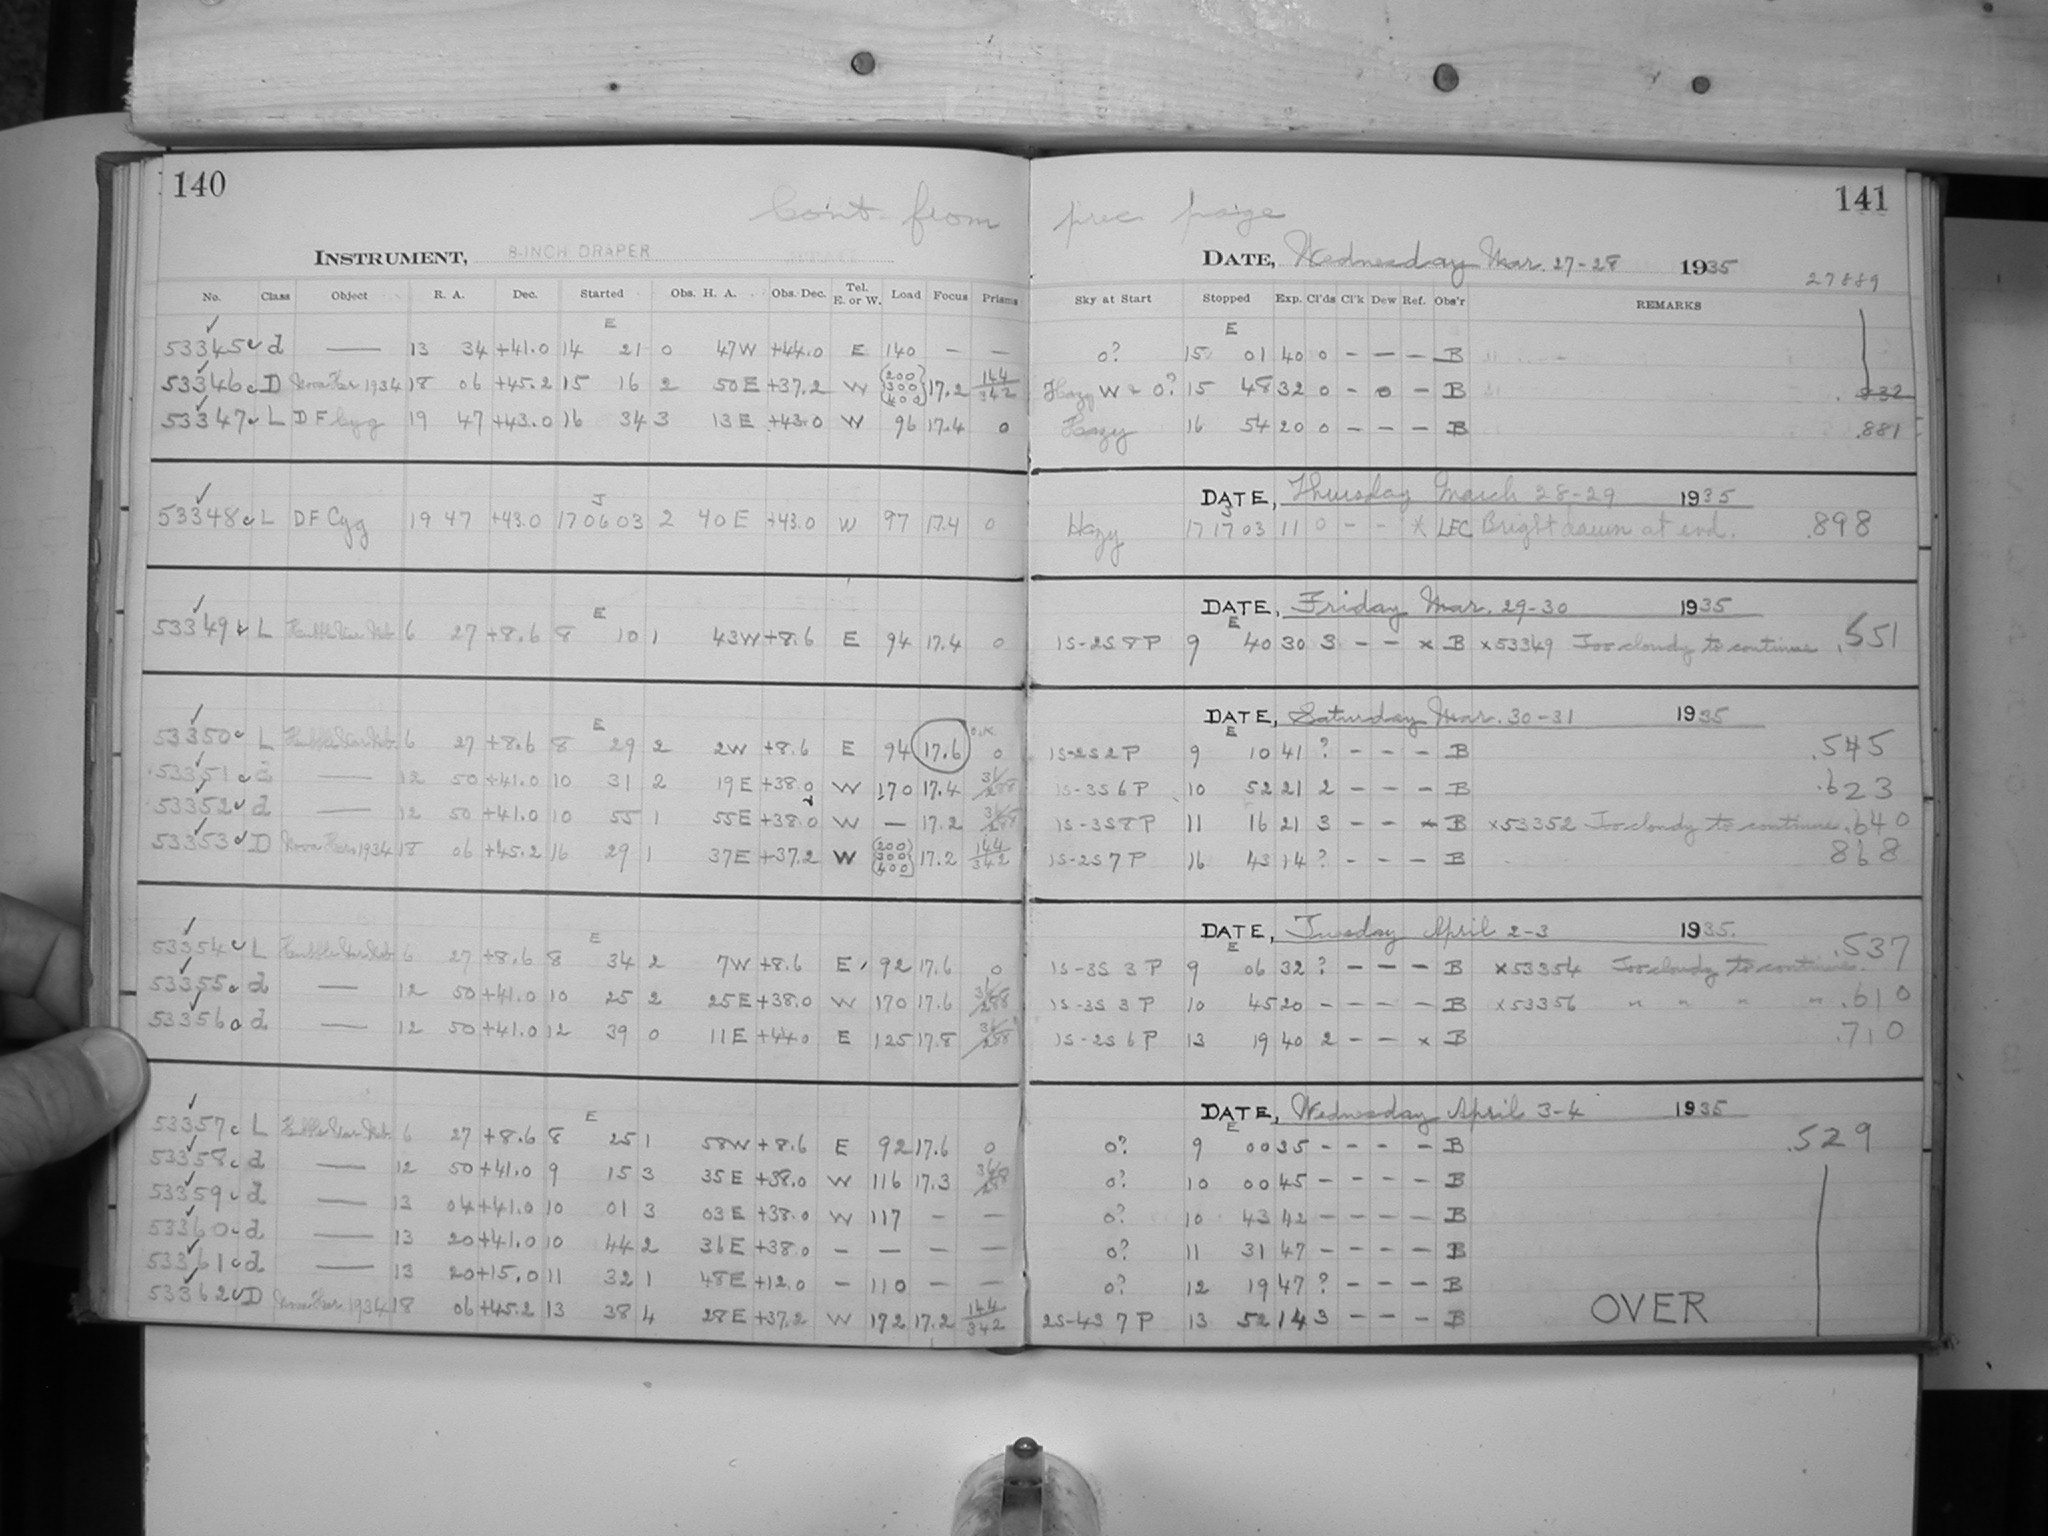 140
141
Con't from prec. page
INSTRUMENT, 8-INCH DRAPER
DATE, Wednesday Mar. 27-28 1935
27889
No. Class Object R. A. Dec. Started Obs. H. A. Obs. Dec. Tel. E. or W. Load Focus Prisms Sky at Start Stopped Exp. Cl'ds Cl'k Dew Ref. Obs'r REMARKS
E E
53345 d — 13 34 +41.0 14 21 0 47W +44.0 E 140 – — 0? 15 01 40 0 – – – B
53346 D Nova Her 1934 18 06 +45.2 15 16 2 50E +37.2 W (200 300 400) 17.2 144/342 Hazy W & 0? 15 48 32 0 – 0 – B .832
53347 L DF Cyg 19 47 +43.0 16 34 3 13E +43.0 W 96 17.4 0 Hazy 16 54 20 0 – – – B .881
DATE, Thursday March 28-29 1935
J J
53348 L DF Cyg 19 47 +43.0 17 06 03 2 40E +43.0 W 97 17.4 0 Hazy 17 17 03 11 0 – – x LEC Bright dawn at end. .898
DATE, Friday Mar. 29-30 1935
E E
53349 L Hubble Var. Neb. 6 27 +8.6 8 10 1 43W +8.6 E 94 17.4 0 1S-2S 8P 9 40 30 3 – – x B x53349 Too cloudy to continue .551
DATE, Saturday Mar. 30-31 1935
E E
53350 L Hubble Var. Neb. 6 27 +8.6 8 29 2 2W +8.6 E 94 17.6 O.K. 0 1S-2S 2P 9 10 41 ? – – – B .545
53351 d — 12 50 +41.0 10 31 2 19E +38.0 W 170 17.4 1S-3S 6P 10 52 21 2 – – – B .623
53352 d — 12 50 +41.0 10 55 1 55E +38.0 W — 17.2 1S-3S 8P 11 16 21 3 – – x B x53352 Too cloudy to continue .640
53353 D Nova Her 1934 18 06 +45.2 16 29 1 37E +37.2 W (200 300 400) 17.2 144/342 1S-2S 7P 16 43 14 ? – – – B 868
DATE, Tuesday April 2-3 1935.
E E
53354 L Hubble Var. Neb. 6 27 +8.6 8 34 2 7W +8.6 E 92 17.6 0 1S-3S 3P 9 06 32 ? – – – B x53354 Too cloudy to continue. .537
53355 d — 12 50 +41.0 10 25 2 25E +38.0 W 170 17.6 1S-3S 3P 10 45 20 – – – – B x53356 " " " " .610
53356 d — 12 50 +41.0 12 39 0 11E +44.0 E 125 17.8 1S-2S 6P 13 19 40 2 – – x B .710
DATE, Wednesday April 3-4 1935
E E
53357 L Hubble Var. Neb. 6 27 +8.6 8 25 1 58W +8.6 E 92 17.6 0 0? 9 00 35 – – – – B .529
53358 d — 12 50 +41.0 9 15 3 35E +38.0 W 116 17.3 0? 10 00 45 – – – – B
53359 d — 13 04 +41.0 10 01 3 03E +38.0 W 117 – — 0? 10 43 42 – – – – B
53360 d — 13 20 +41.0 10 44 2 36E +38.0 – — – — 0? 11 31 47 – – – – B
53361 d — 13 20 +15.0 11 32 1 48E +12.0 – 110 – — 0? 12 19 47 ? – – – B
53362 D Nova Her 1934 18 06 +45.2 13 38 4 28E +37.2 W 172 17.2 144/342 2S-4S 7P 13 52 14 3 – – – B
OVER